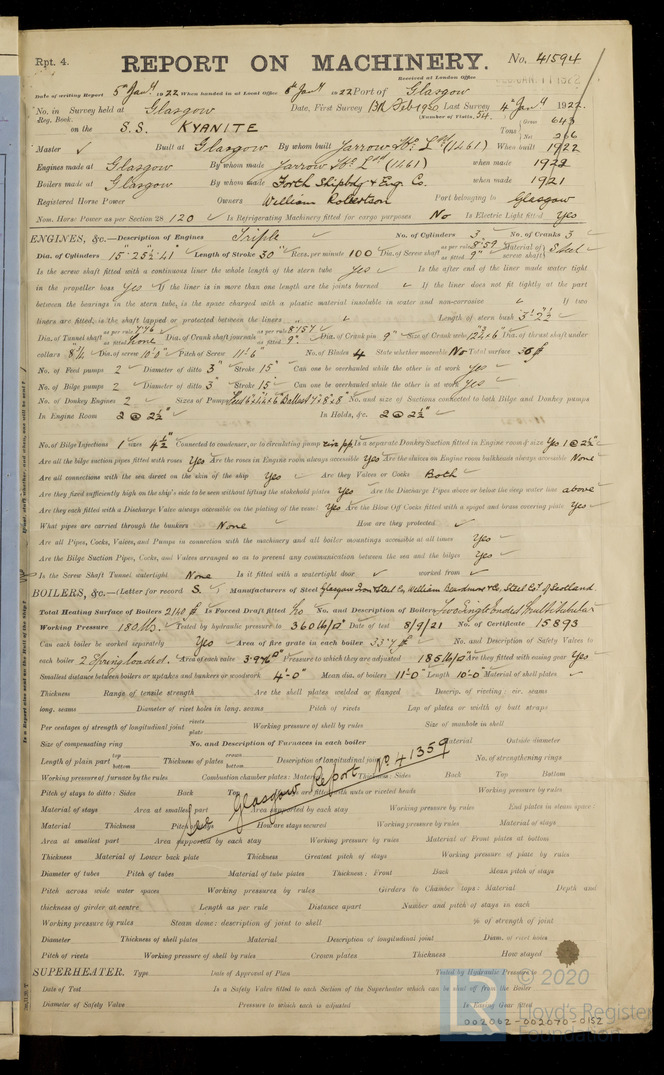 Rpt. 4. REPORT ON MACHINERY. No. 41594
Received at London Office
Date of writing Report 5th Jany. 1922 When handed in at Local Office 6th Jany 1922 Port of Glasgow
No. in Survey held at Glasgow Date, First Survey Feb Last Survey 4th Jany 1922
Reg. Book. (Number of Visits, 54.
on the S.S. KYANITE Tons Gross 643 Net
Master ✓ Built at Glasgow By whom built Yarrow & Co Ltd (1461) When built 1922
Engines made at Glasgow By whom made Yarrow & Co Ltd (1461) when made 1922
Boilers made at Glasgow By whom made Forth Shipbdg & Eng. Co. when made 1921
Registered Horse Power Owners William Robertson Port belonging to Glasgow
Nom. Horse Power as per Section 28 120 Is Refrigerating Machinery fitted for cargo purposes No Is Electric Light fitted Yes
ENGINES, &c.—Description of Engines Triple No. of Cylinders 3 No. of Cranks 3
Dia. of Cylinders 15" 25½" 41" Length of Stroke 30" Revs. per minute 100 Dia. of Screw shaft as per rule 8.59 as fitted 9" Material of screw shaft Steel
Is the screw shaft fitted with a continuous liner the whole length of the stern tube Yes Is the after end of the liner made water tight
in the propeller boss Yes If the liner is in more than one length are the joints burned ✓ If the liner does not fit tightly at the part
between the bearings in the stern tube, is the space charged with a plastic material insoluble in water and non-corrosive ✓ If two
liners are fitted, is the shaft lapped or protected between the liners ✓ Length of stern bush 3'-2½"
Dia. of Tunnel shaft as per rule 7.76 as fitted None Dia. of Crank shaft journals as per rule 8.157 as fitted 9" Dia. of Crank pin 9" Size of Crank webs Dia. of thrust shaft under
collars 8¾" Dia. of screw 10'-0" Pitch of Screw 11'-6" No. of Blades 4 State whether moveable No Total surface 36
No. of Feed pumps 2 Diameter of ditto 3" Stroke 15" Can one be overhauled while the other is at work Yes
No. of Bilge pumps 2 Diameter of ditto 3" Stroke 15 Can one be overhauled while the other is at work Yes
No. of Donkey Engines 2 Sizes of Pumps Ballast No. and size of Suctions connected to both Bilge and Donkey pumps
In Engine Room 2 @ 2½" In Holds, &c. 2 @ 2½"
No. of Bilge Injections 1 sizes 4½" Connected to condenser, or to circulating pump circ pp Is a separate Donkey Suction fitted in Engine room & size Yes 1 @ 2½"
Are all the bilge suction pipes fitted with roses Yes Are the roses in Engine room always accessible Yes Are the sluices on Engine room bulkheads always accessible None
Are all connections with the sea direct on the skin of the ship Yes Are they Valves or Cocks Both
Are they fixed sufficiently high on the ship's side to be seen without lifting the stokehold plates Yes Are the Discharge Pipes above or below the deep water line above
Are they each fitted with a Discharge Valve always accessible on the plating of the vessel Yes Are the Blow Off Cocks fitted with a spigot and brass covering plate Yes
What pipes are carried through the bunkers None How are they protected ✓
Are all Pipes, Cocks, Valves, and Pumps in connection with the machinery and all boiler mountings accessible at all times Yes
Are the Bilge Suction Pipes, Cocks, and Valves arranged so as to prevent any communication between the sea and the bilges Yes
Is the Screw Shaft Tunnel watertight None Is it fitted with a watertight door ✓ worked from ✓
BOILERS, &c.—(Letter for record S. ) Manufacturers of Steel Glasgow Iron & Steel Co, William Beardmore & Co, Steel Coy of Scotland.
Total Heating Surface of Boilers 2140 Is Forced Draft fitted No No. and Description of Boilers Two Single Ended Multitubular
Working Pressure 180 lbs. Tested by hydraulic pressure to 360 lb/□" Date of test 8/9/21 No. of Certificate 15893
Can each boiler be worked separately Yes Area of fire grate in each boiler No. and Description of Safety Valves to
each boiler 2 Spring loaded Area of each valve 3.976 □" Pressure to which they are adjusted 185 lb/□" Are they fitted with easing gear Yes
Smallest distance between boilers or uptakes and bunkers or woodwork 4'-0" Mean dia. of boilers 11'-0" Length 10'-0" Material of shell plates ✓
Thickness Range of tensile strength Are the shell plates welded or flanged Descrip. of riveting: cir. seams
long. seams Diameter of rivet holes in long. seams Pitch of rivets Lap of plates or width of butt straps
Per centages of strength of longitudinal joint rivets plate Working pressure of shell by rules Size of manhole in shell
Size of compensating ring No. and Description of Furnaces in each boiler Material Outside diameter
Length of plain part top bottom Thickness of plates crown bottom Description of longitudinal joint No. of strengthening rings
Working pressure of furnace by the rules Combustion chamber plates: Material Thickness: Sides Back Top Bottom
Pitch of stays to ditto: Sides Back Top If stays are fitted with nuts or riveted heads Working pressure by rules
See Glasgow Report No 41359
Material of stays Area at smallest part Area supported by each stay Working pressure by rules End plates in steam space:
Material Thickness Pitch of stays How are stays secured Working pressure by rules Material of stays
Area at smallest part Area supported by each stay Working pressure by rules Material of Front plates at bottom
Thickness Material of Lower back plate Thickness Greatest pitch of stays Working pressure of plate by rules
Diameter of tubes Pitch of tubes Material of tube plates Thickness: Front Back Mean pitch of stays
Pitch across wide water spaces Working pressures by rules Girders to Chamber tops: Material Depth and
thickness of girder at centre Length as per rule Distance apart Number and pitch of stays in each
Working pressure by rules Steam dome: description of joint to shell % of strength of joint
Diameter Thickness of shell plates Material Description of longitudinal joint Diam. of rivet holes
Pitch of rivets Working pressure of shell by rules Crown plates Thickness How stayed
SUPERHEATER. Type Date of Approval of Plan Tested by Hydraulic Pressure to
Date of Test Is a Safety Valve fitted to each Section of the Superheater which can be shut off from the Boiler
Diameter of Safety Valve Pressure to which each is adjusted Is Easing Gear fitted
© 2020
Lloyd's Register
Foundation
LR
002062-002070-0152